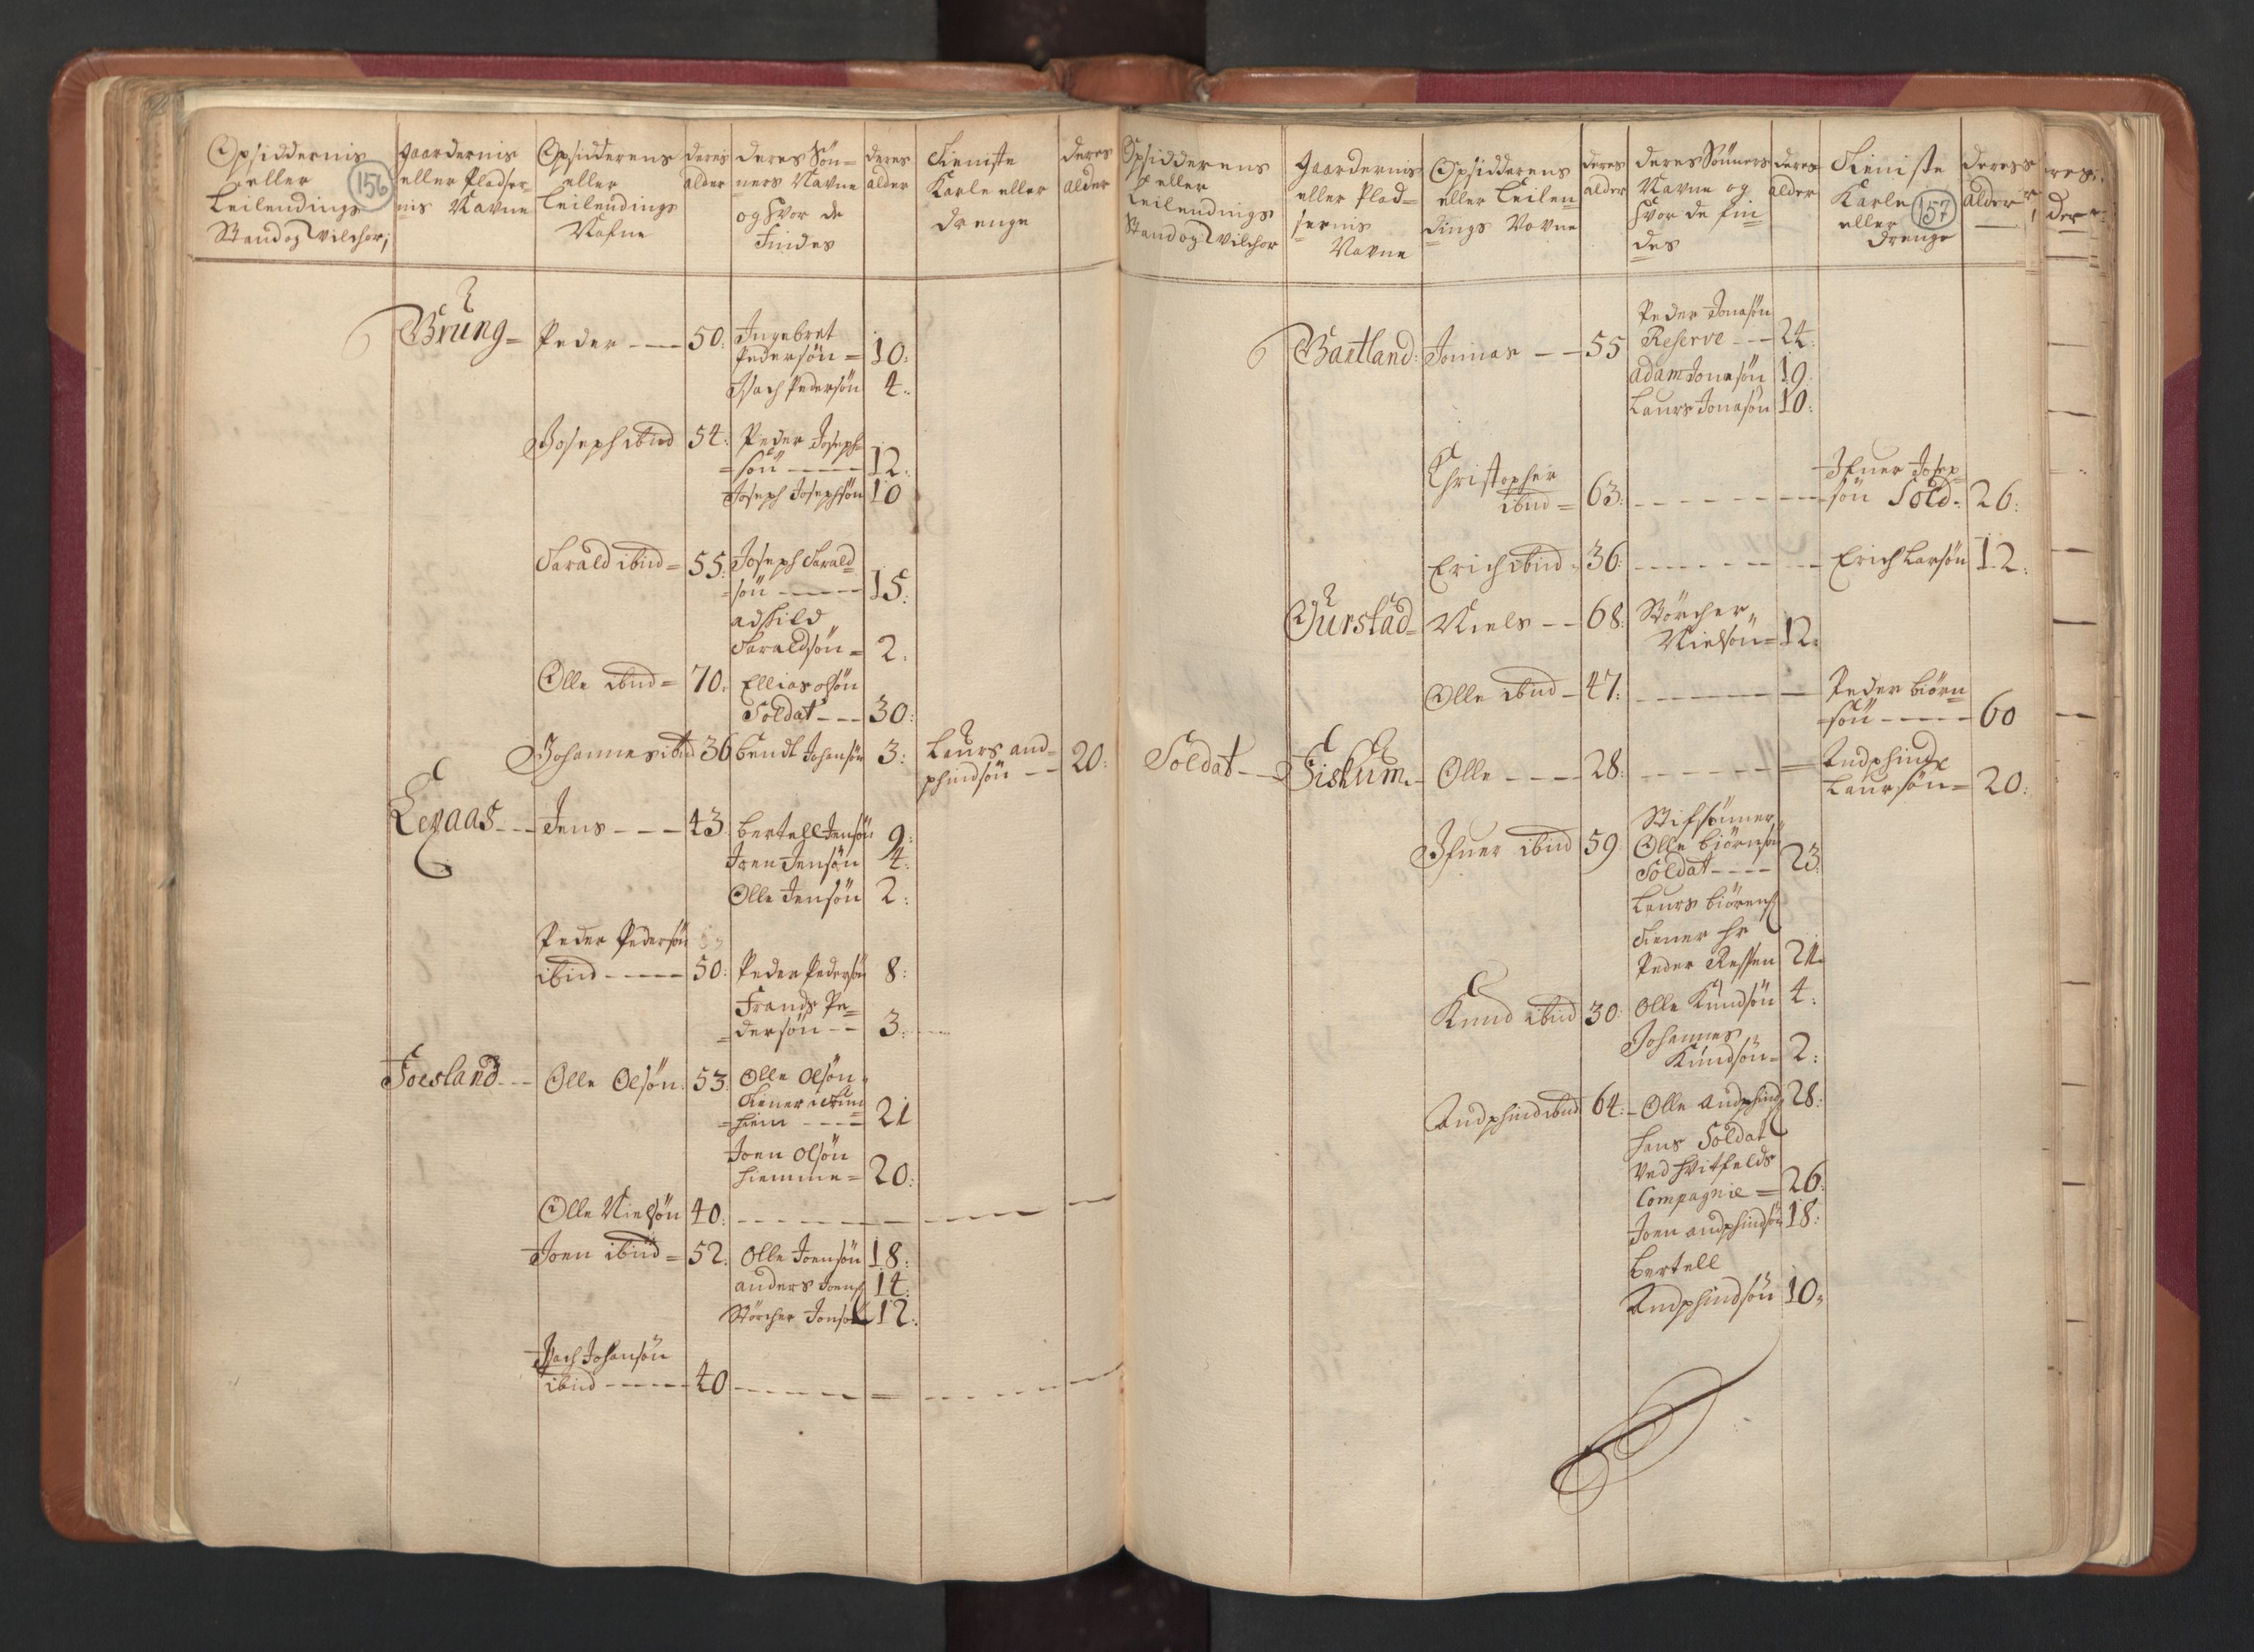 Opsiddernis
eller
Leilendings
Stand og Vilchor;
156
Gaardernis
eller Pladser-
nis Navne
Opsidderens
eller
Leilendings
Nafne
deris
alder
deres Søn=
ners Navne
og hvor de
Findes
deres
alder
Tieniste
Karle eller
drenge
deres
alder
Brung= Peder --- 50: Ingebret
Pedersøn = 10:
Isach Pedersøn 4:
Joseph ibid 54: Peder Joseph=
=søn ---- 12:
Joseph Josephsøn 10
Harald ibid= 55: Joseph Harald=
=søn ---- 15:
Haraldsøn = 2:
Olle ibid= 70: Ellias olsøn
Soldat --- 30:
Johannes ibid 36 bendt Johansøn 3: Laurs and=
phindsøn -- 20:
Jens --- 43 bertell Jensøn 9:
Joen Jensøn 4:
Olle Jensøn 2:
Peder Pedersøn
ibid ---- 50: Peder Pedersøn 8:
Frands Pe=
dersøn -- 3:
Foesland -- Olle Olsøn 53: Olle Olsøn
21
Joen Olsøn
hiemme = 20:
Olle Nielsøn 40:
Joen ibid = 52: Olle Joensøn 18:
anders Joens 14:
Störcher Jonsøn 12:
Isach Johansøn
ibid ---- 40
Opsidderens
eller
Leilendings
Stand og Vilchor
Gaardernis
eller Plad=
sernis
Navne
Opsidderens
eller Leilen=
dings Navne
deres
alder
deres Sönners
Navne og
hvor de fin
des
deres
alder
Tieniste
Karle
eller
drenge
157
deres
alder
Baatland: Jonnas -- 55 Peder Jonasøn
Reserve --- 24:
adam Jonasøn 19:
Laurs Jonasøn 10:
Christopher
ibid = 63: Ifuer Josep
søn Sold: 26:
Erich ibid 36: Erich Larsøn 12:
Gurstad= Niels -- 68: Störcher
Nielsøn= 12:
Olle ibid - 47: Peder biörn
=søn ---- 60
Soldat -- Fiskum - Olle ---- 28: Andphind
Laursøn= 20:
Ifuer ibid 59 Stifsønner
Olle biörnsøn
Soldat ---- 23:
Laurs biörens
tiener hr
Peder Ressen 21:
Knud ibid 30: Olle Knudsøn 4:
Johannes
Knudsøn= 2:
Andphind ibid 64: Olle Andphinds 28:
hans Soldat
ved hvitfelds
Compagnie = 26:
Joen andphindsøn 18:
bertell
Andphindsøn 10: